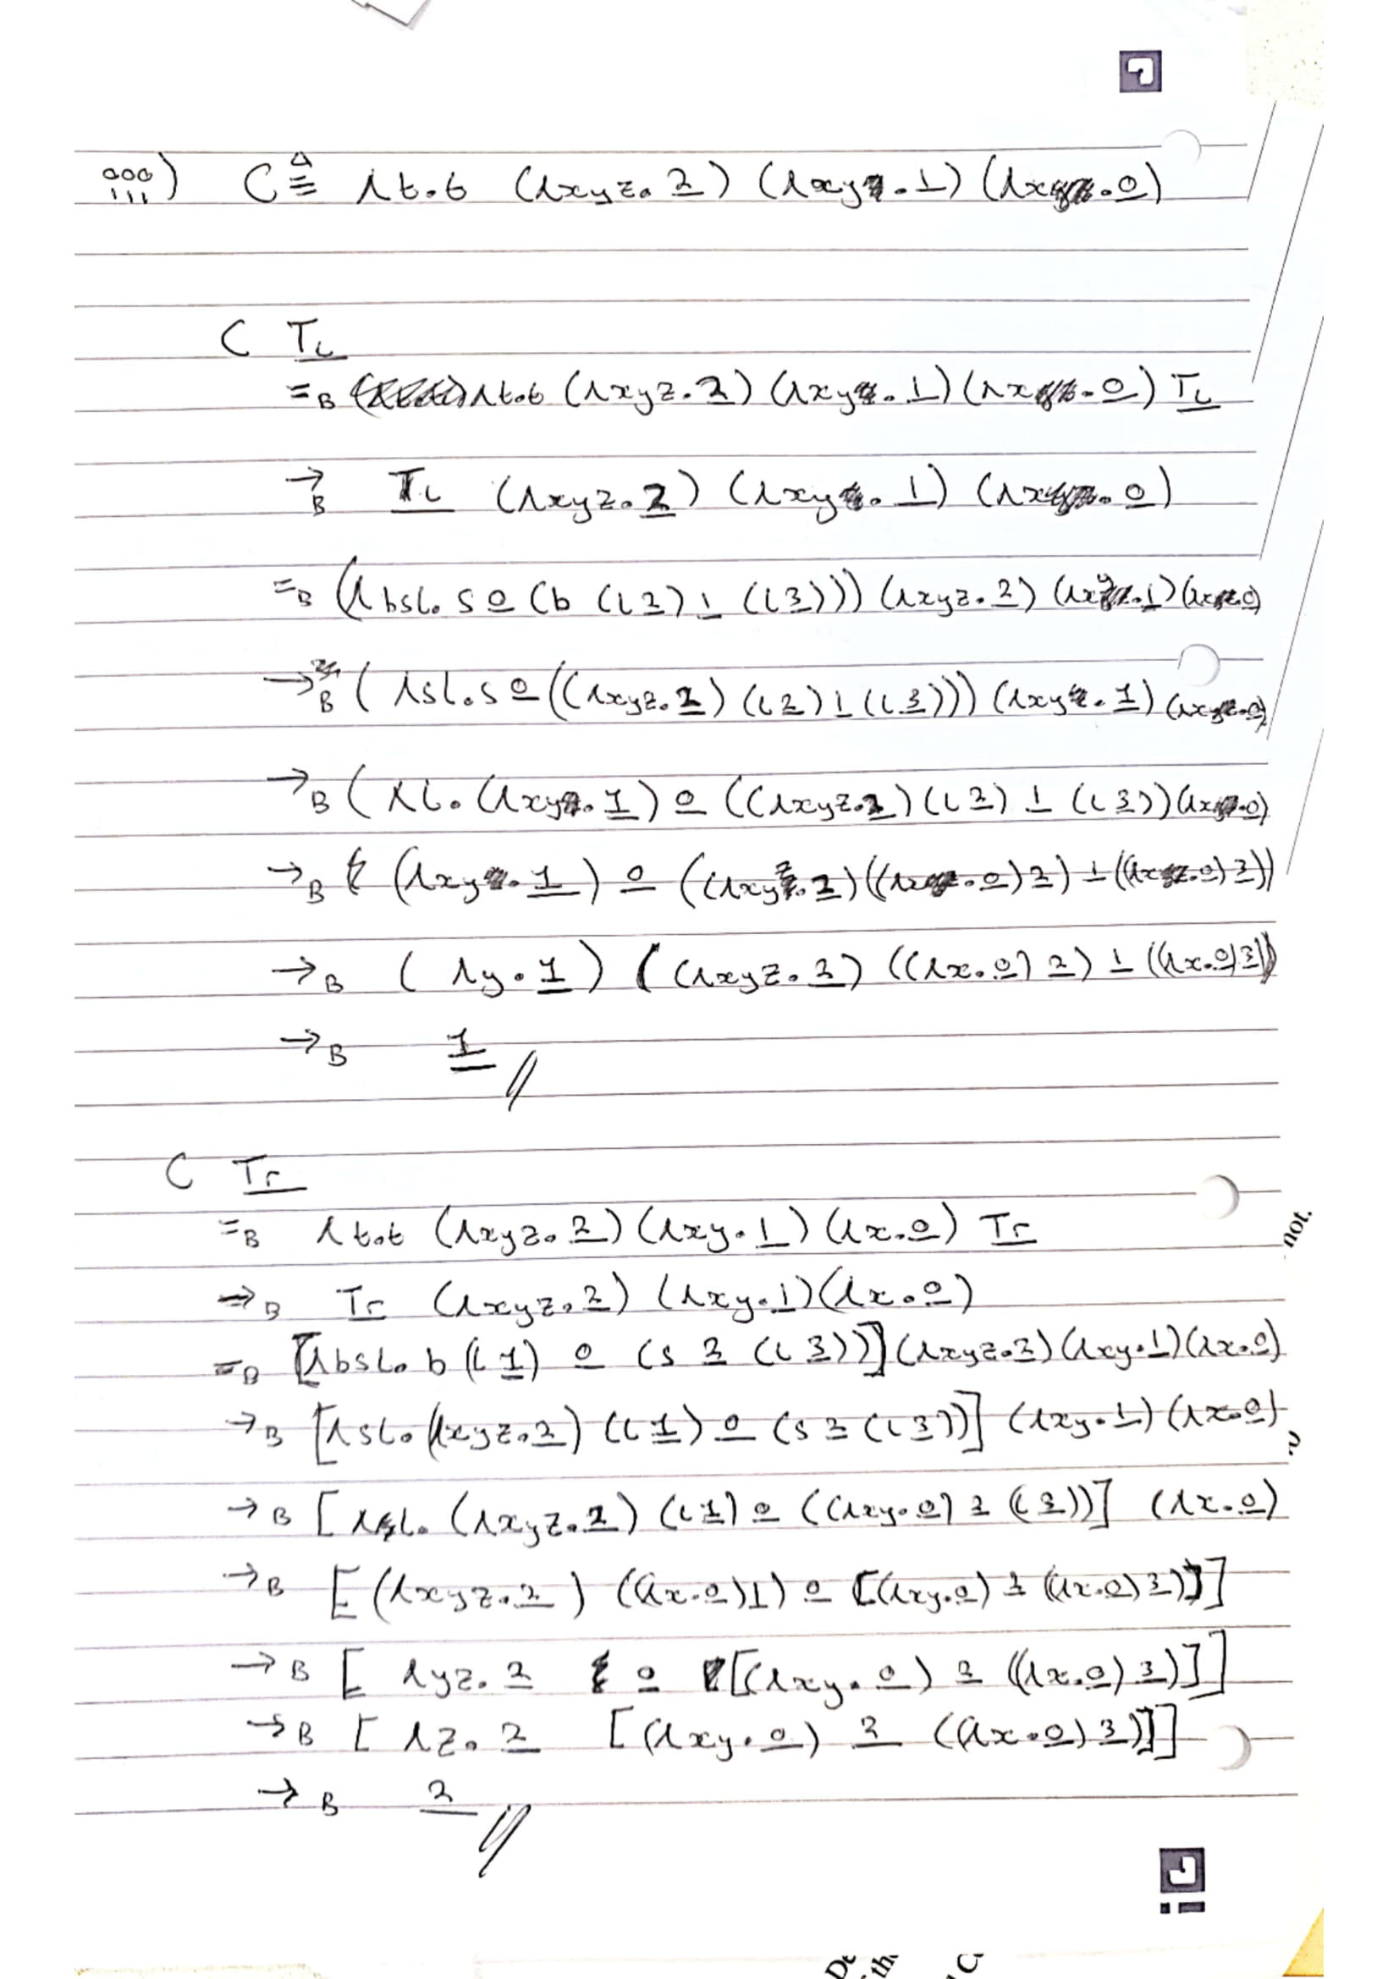 iii) C ≜ λt.t (λxyz.2) (λxy.1) (λx.0)
C T_L
=β λt.t (λxyz.2) (λxy.1) (λx.0) T_L
→β T_L (λxyz.2) (λxy.1) (λx.0)
=β (λbsl.s 0 (b (l 2) 1 (l 3))) (λxyz.2) (λxy.1) (λx.0)
→β (λsl.s 0 ((λxyz.2) (l 2) 1 (l 3))) (λxy.1) (λx.0)
→β (λl.(λxy.1) 0 ((λxyz.2) (l 2) 1 (l 3)) (λx.0)
→β (λxy.1) 0 ((λxyz.2) ((λx.0) 2) 1 ((λx.0) 3))
→β (λy.1) ((λxyz.2) ((λx.0) 2) 1 ((λx.0) 3))
→β 1 //
C Tr
=β λt.t (λxyz.2) (λxy.1) (λx.0) Tr
→β Tr (λxyz.2) (λxy.1) (λx.0)
=β [λbsl.b (l 1) 0 (s 2 (l 3))] (λxyz.2) (λxy.1) (λx.0)
→β [λsl.(λxyz.2) (l 1) 0 (s 2 (l 3))] (λxy.1) (λx.0)
→β [λl.(λxyz.2) (l 1) 0 ((λxy.0) 2 (l 3))] (λx.0)
→β [(λxyz.2) ((λx.0) 1) 0 [(λxy.0) 2 ((λx.0) 3)]]
→β [λyz.2 0 [(λxy.0) 2 ((λx.0) 3)]]
→β [λz.2 [(λxy.0) 2 ((λx.0) 3)]]
→β 2 //
not.